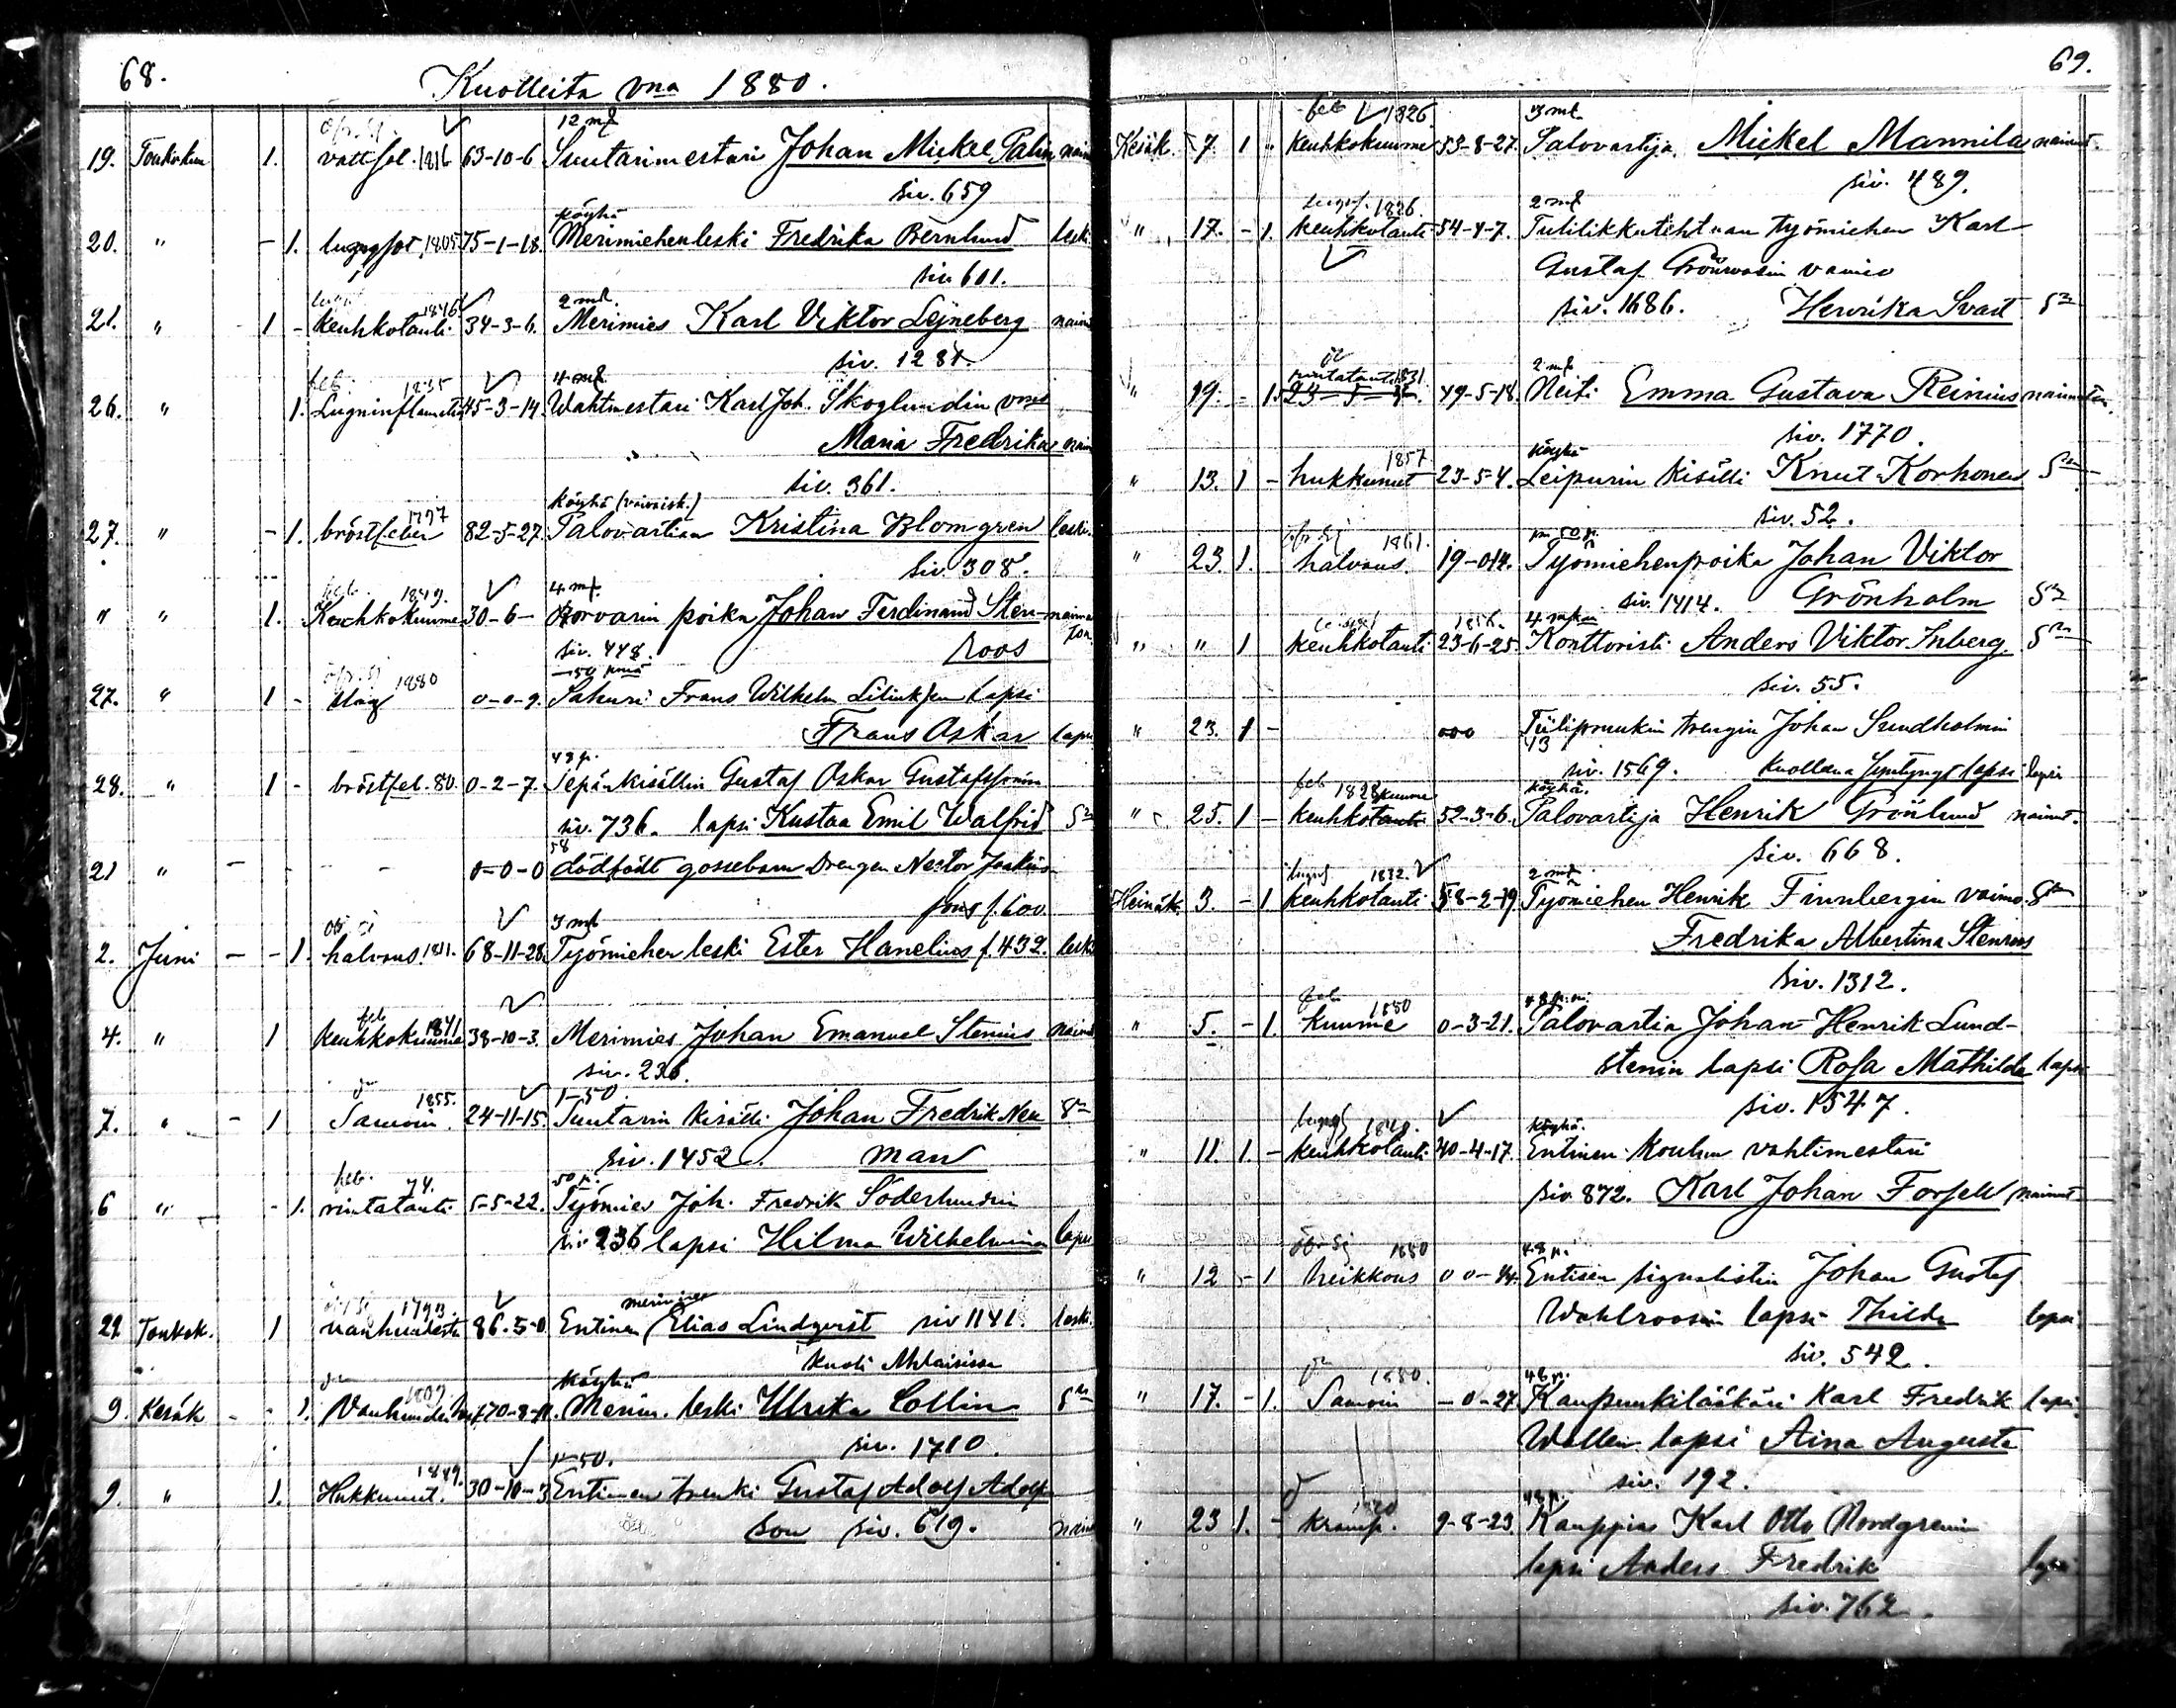 68.
Kuolleita vna 1880.
12 mk
19. Toukokuu 1. vattsot. 1816 63-10-6 Suutarimestari Johan Mickel Palm nainut
siv. 659
köyhä
20. " - 1. lungsot. 1805 75-1-18. Merimiehenleski Fredrika Bernlund leski
siv. 601.
2 mk.
21. " 1 - keuhkotauti 1846 34-3-6. Merimies Karl Viktor Lejneberg nainut
siv. 1281.
feb. 1835 4 mk
26. " 1. Lunginflamation 45-3-14. Wahtmestari Karl Joh. Skoglundin vmo
Maria Fredrika nain
siv. 361.
1797 Köyhä (vaivaisk.)
27. " - 1. bröstfeber 82-5-27. Palovartian Kristina Blomgren leski.
siv. 308.
feb. 1849. 4 mk.
" " 1. Keuhkokuume 30-6- Sorvarin poika Johan Ferdinand Sten- naima
siv. 448. roos ton
50 pniä
27. " 1 - slag 1880 0-0-9. Sahuri Frans Wilhelm lapsi
Frans Oskar lapsi
48 p.
28. " 1 - bröstfeb. 80. 0-2-7. Sepänkisällin Gustaf Oskar Gustafssonin
siv. 736. lapsi Kustaa Emil Walfrid Sn
58
21 " - - 0-0-0 dödfödt gossebarn Drengen Nestor Joakims-
sons f. 600.
3 mk
2. Juni - - 1. halvaus. 1811. 68-11-28. Työmiehen leski Ester Hanelius f. 432. leski
feb
4. " 1 keuhkokuume 1841 38-10-3. Merimies Johan Emanuel Stenius nainut
siv. 236.
1855. 1-50
7. " - 1 Samoin. 24-11-15. Suutarin kisälli Johan Fredrik Neu Sn
siv. 1452. man
feb. 74. 50 p.
6 " - 1. rintatauti 5-5-22. Työmies Joh. Fredrik Söderlundin
siv 236 lapsi Hilma Wilhelmina lapsi
1793. merimies
22 Toukok. 1 vanhuudesta 86-5-0 Entinen Elias Lindqvist siv 1141 leski.
kuoli Ahlaisissa
1809. köyhä
9. Kesäk - - 1. Vanhuuden 70-8-11. Merim. leski Ulrika Collin Sn
siv. 1710.
1849. 1-50.
9. " 1. Hukkunut. 30-10-3 Entinen trenki Gustaf Adolf Adolf
son siv. 619. nainut
69.
feb 1826. 3 mk
Kesäk. 7. 1 - Keuhkokuume 53-8-27. Palovartija Mickel Mannila nainut.
siv. 489.
lungsf. 1826. 2 mk
" 17. - 1. keuhkotauti 54-4-7. Tulitikkutehtaan työmiehen Karl
Gustaf Grönroosin vaimo
siv. 1686. Henrika Svart Sn
1831 2 mk
" 19. - 1. rintatauti 23-5-4. 49-5-18. Neiti Emma Gustava Reinius naimaton.
siv. 1770.
1857 köyhä
" 13. 1 - hukkunut 23-5-4. Leipurin kisälli Knut Korhonen Sn
siv. 52.
1861. 50 p.
" 23. 1. halvaus. 19-0-14. Työmiehenpoika Johan Viktor
siv. 1414. Grönholm Sn
1856. 4 mkaa
" " 1 keuhkotauti 23-6-25. Konttoristi Anders Viktor Inberg. Sn
siv. 55.
" 23. 1 - 000 Tiilipruukin trengin Johan Sundholmin
13
siv. 1569. kuollena syntynyt lapsi lapsi
feb 1828 kuume köyhä.
" 25. 1 - keuhkotauti 52-3-6. Palovartija Henrik Grönlund nainut.
siv. 668.
lungs 1832. 2 mk
Heinäk. 3. - 1 keuhkotauti 58-2-19 Työmiehen Henrik Finnbergin vaimo Sn
Fredrika Albertina Stenroos
siv. 1312.
feb 1880 48 p.
" 5. - 1. kuume 0-3-21. Palovartia Johan Henrik Lund-
stenin lapsi Rosa Mathilda lapsi
siv. 1547.
lungs 1840. köyhä.
" 11. 1. - keuhkotauti 40-4-17. Entinen koulun vahtimestari
siv. 872. Karl Johan Forsell nainut
öfr. sj 1880 48 p.
" 12 - 1 heikkous 0 0-14. Entisen signalistin Johan Gustaf
Wahlroosin lapsi Thilda lapsi
siv. 542.
1880. 48 p.
" 17. - 1. Samoin - 0-27. Kaupunkilääkäri Karl Fredrik lapsi
Wallen lapsi Aina Augusta
siv. 192.
48 p.
" 23 1. - kramp. 9-8-23 Kauppias Karl Otto Nordgrenin
lapsi Anders Fredrik lapsi
siv. 762.